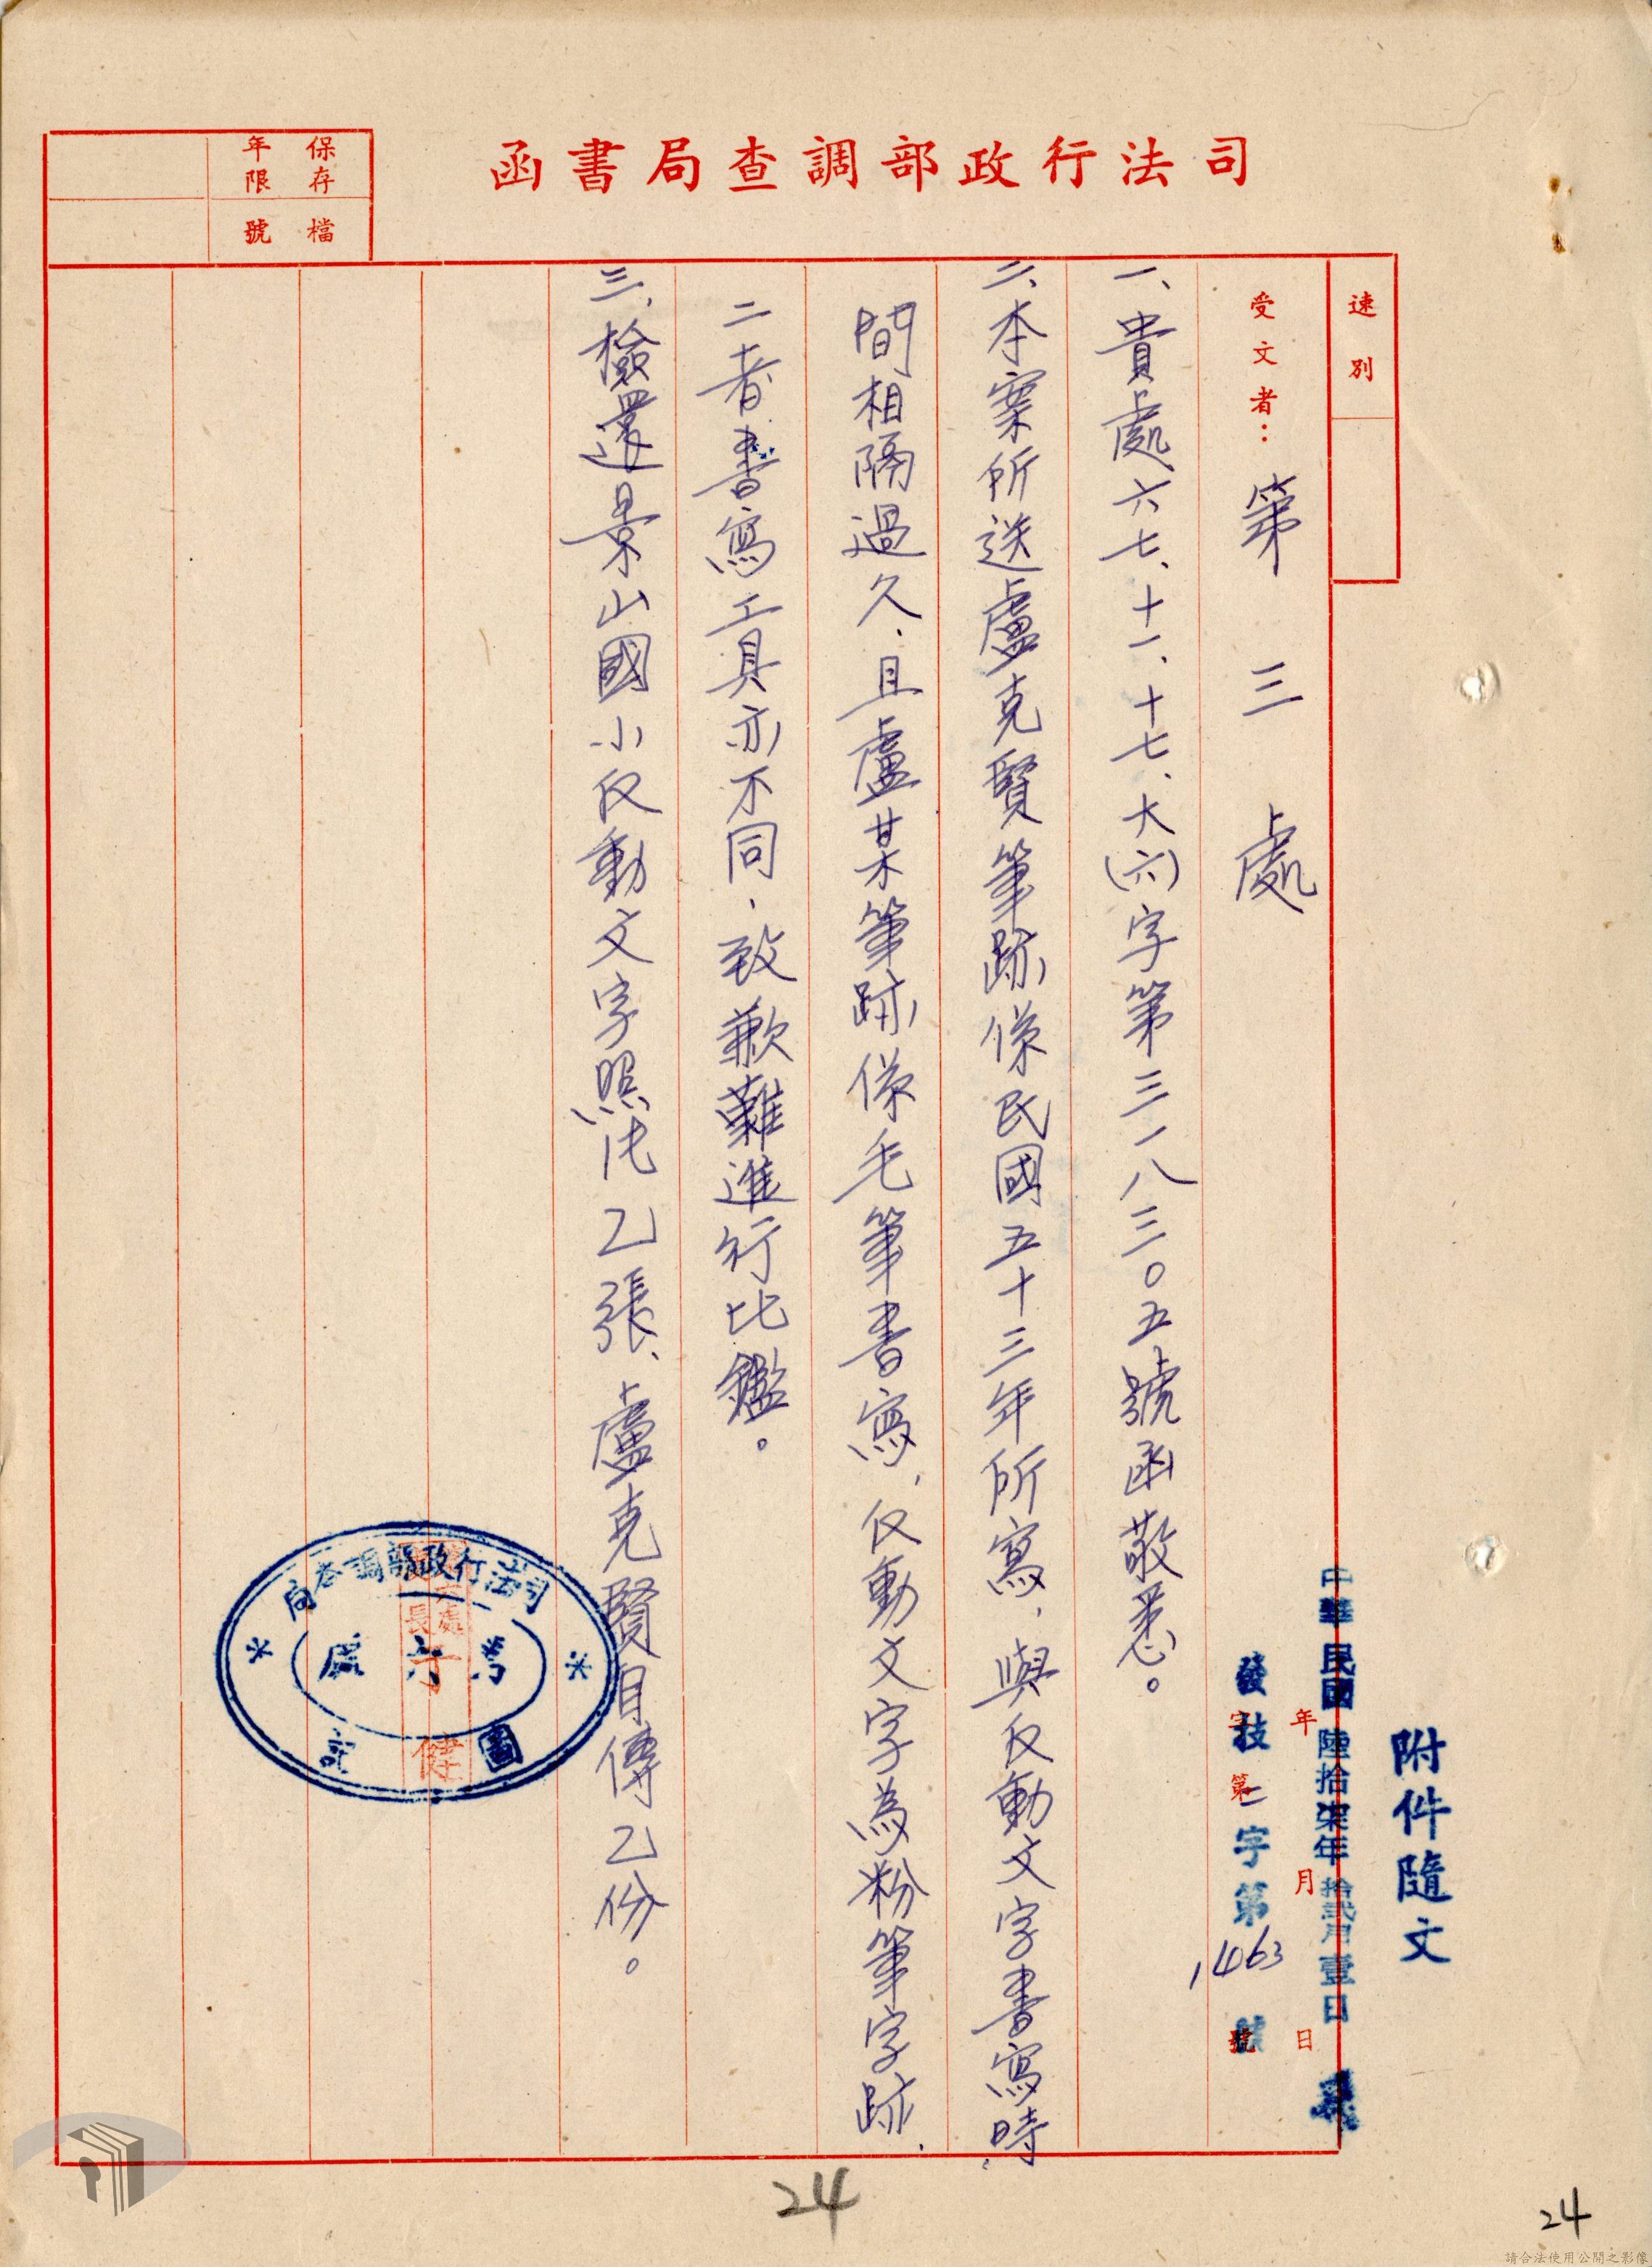 司法行政部調查局書函
保存年限
檔號
速別
受文者：第三處
附件隨文
中華民國陸拾柒年拾貳月壹日
年月日
發技二字第1463號
字第號
一、貴處六七、十一、十七、大(六)字第三一八三０五號函敬悉。
二、本案所送盧克賢筆跡係民國五十三年所寫，與反動文字書寫時
間相隔過久，且盧某筆跡係毛筆書寫，反動文字為粉筆字跡，
二者書寫工具亦不同，致歉難進行比鑑。
三、檢還景山國小反動文字照片乙張、盧克賢自傳乙份。
司法行政部調查局
第六處
圖記
處長
健
24
24
請合法使用公開之影像